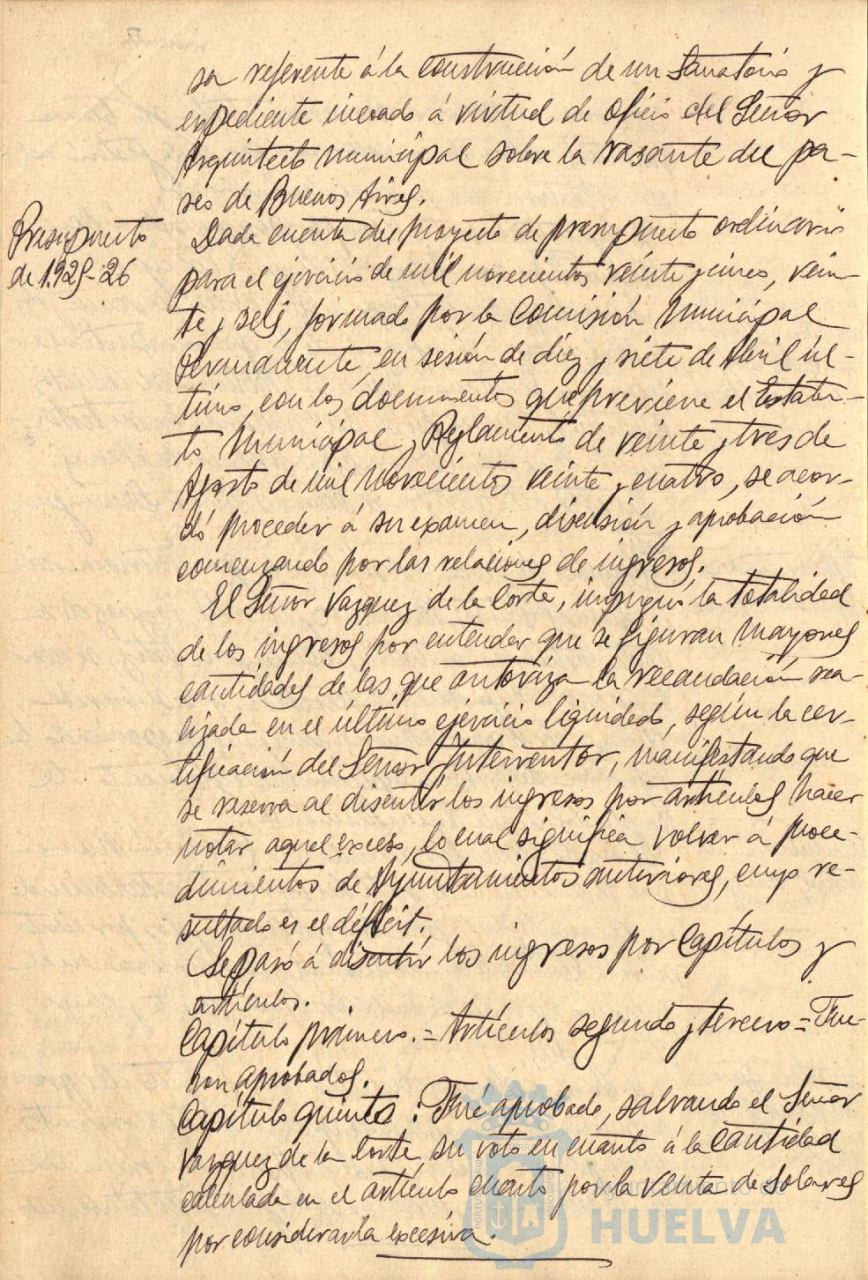 sa referente á la construcción de un Sanatorio y
expediente incoado á virtud de oficio del Señor
Arquitecto municipal sobre la rasante del pa-
seo de Buenos Aires.
Presupuesto
de 1.925-26
Dada cuenta del proyecto de presupuesto ordinario
para el ejercicio de mil novecientos veinte y cinco, vein-
te y seis, formado por la Comisión Municipal
Permanente, en sesión de diez y siete de Abril úl-
timo, con los documentos que previene el Estatu-
to Municipal y Reglamento de veinte y tres de
Agosto de mil novecientos veinte y cuatro, se acor-
dó proceder á su examen, discusión y aprobación
comenzando por las relaciones de ingresos.
El Señor Vazquez de la Corte, impugnó la totalidad
de los ingresos por entender que se figuran mayores
cantidades de las que autoriza la recaudación rea-
lizada en el último ejercicio liquidado, según la cer-
tificación del Señor Interventor, manifestando que
se reserva al discutir los ingresos por artículos hacer
notar aquel exceso, lo cual significa volver á proce-
dimientos de Ayuntamientos anteriores, cuyo re-
sultado es el déficit.
Se pasó á discutir los ingresos por Capítulos y
artículos.
Capítulo primero.= Artículos segundo y tercero = Fue-
ron aprobados.
Capítulo quinto: Fué aprobado, salvando el Señor
Vazquez de la Corte, su voto en cuanto á la cantidad
calculada en el artículo cuarto por la venta de solares
por considerarla excesiva.
Ayuntamiento de
HUELVA